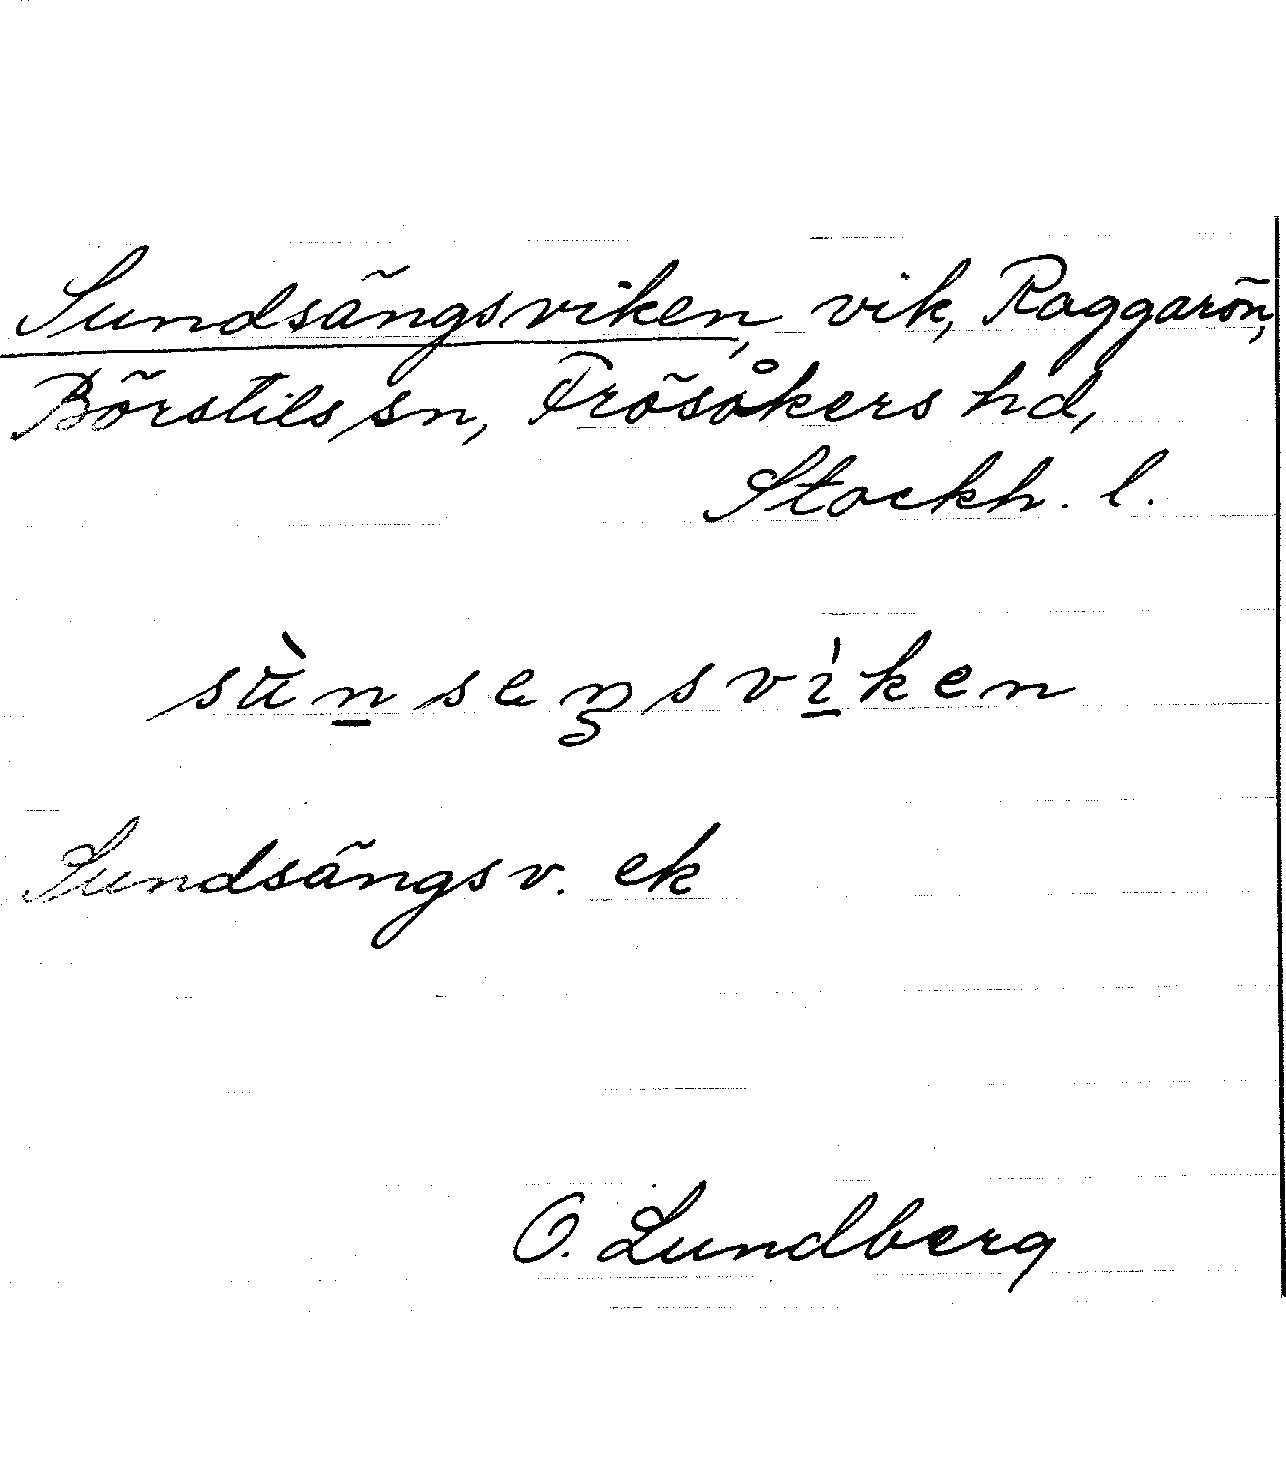 Sundsängsviken, vik, Raggarön,
Börstils sn, Frösåkers hd,
Stockh. l.
sùn̲seŋsvi̲̍ken
Sundsängsv. ek
O. Lundberg